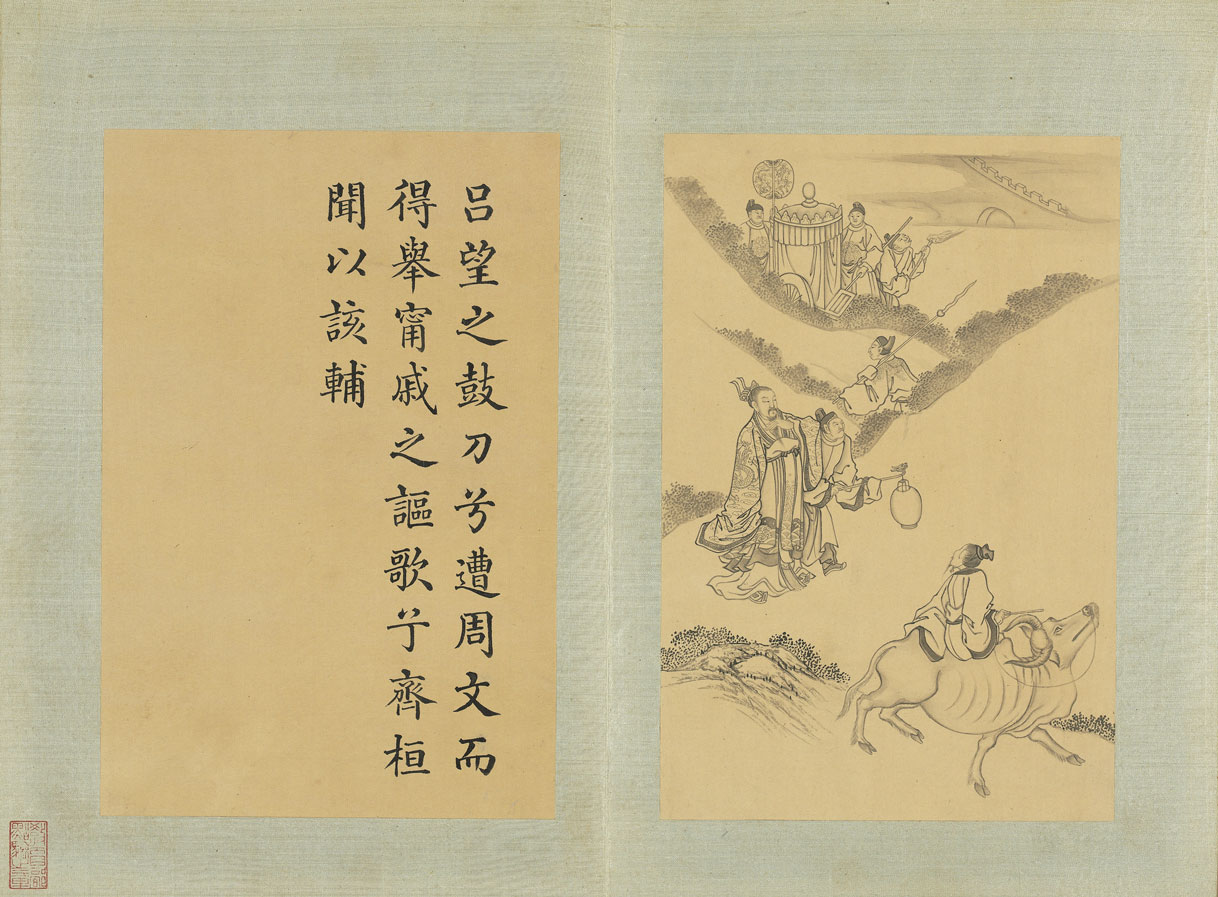 呂望之鼓刀兮遭周文而
得舉甯戚之謳歌兮齊桓
聞以該輔